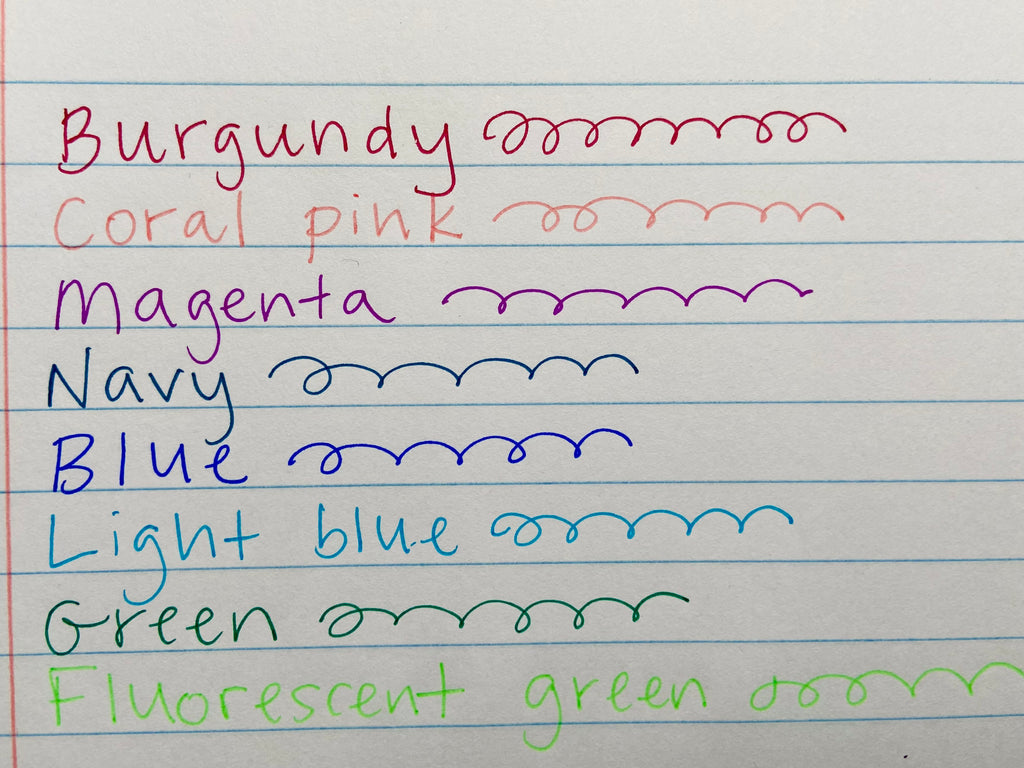 Burgundy
Coral pink
Magenta
Navy
Blue
Light blue
Green
Fluorescent green